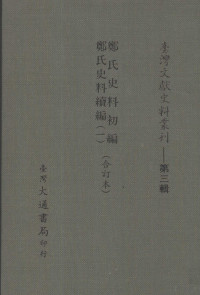 臺灣文獻史料叢刊——第三輯
鄭氏史料初編
鄭氏史料續編(一)
(合訂本)
臺灣大通書局印行